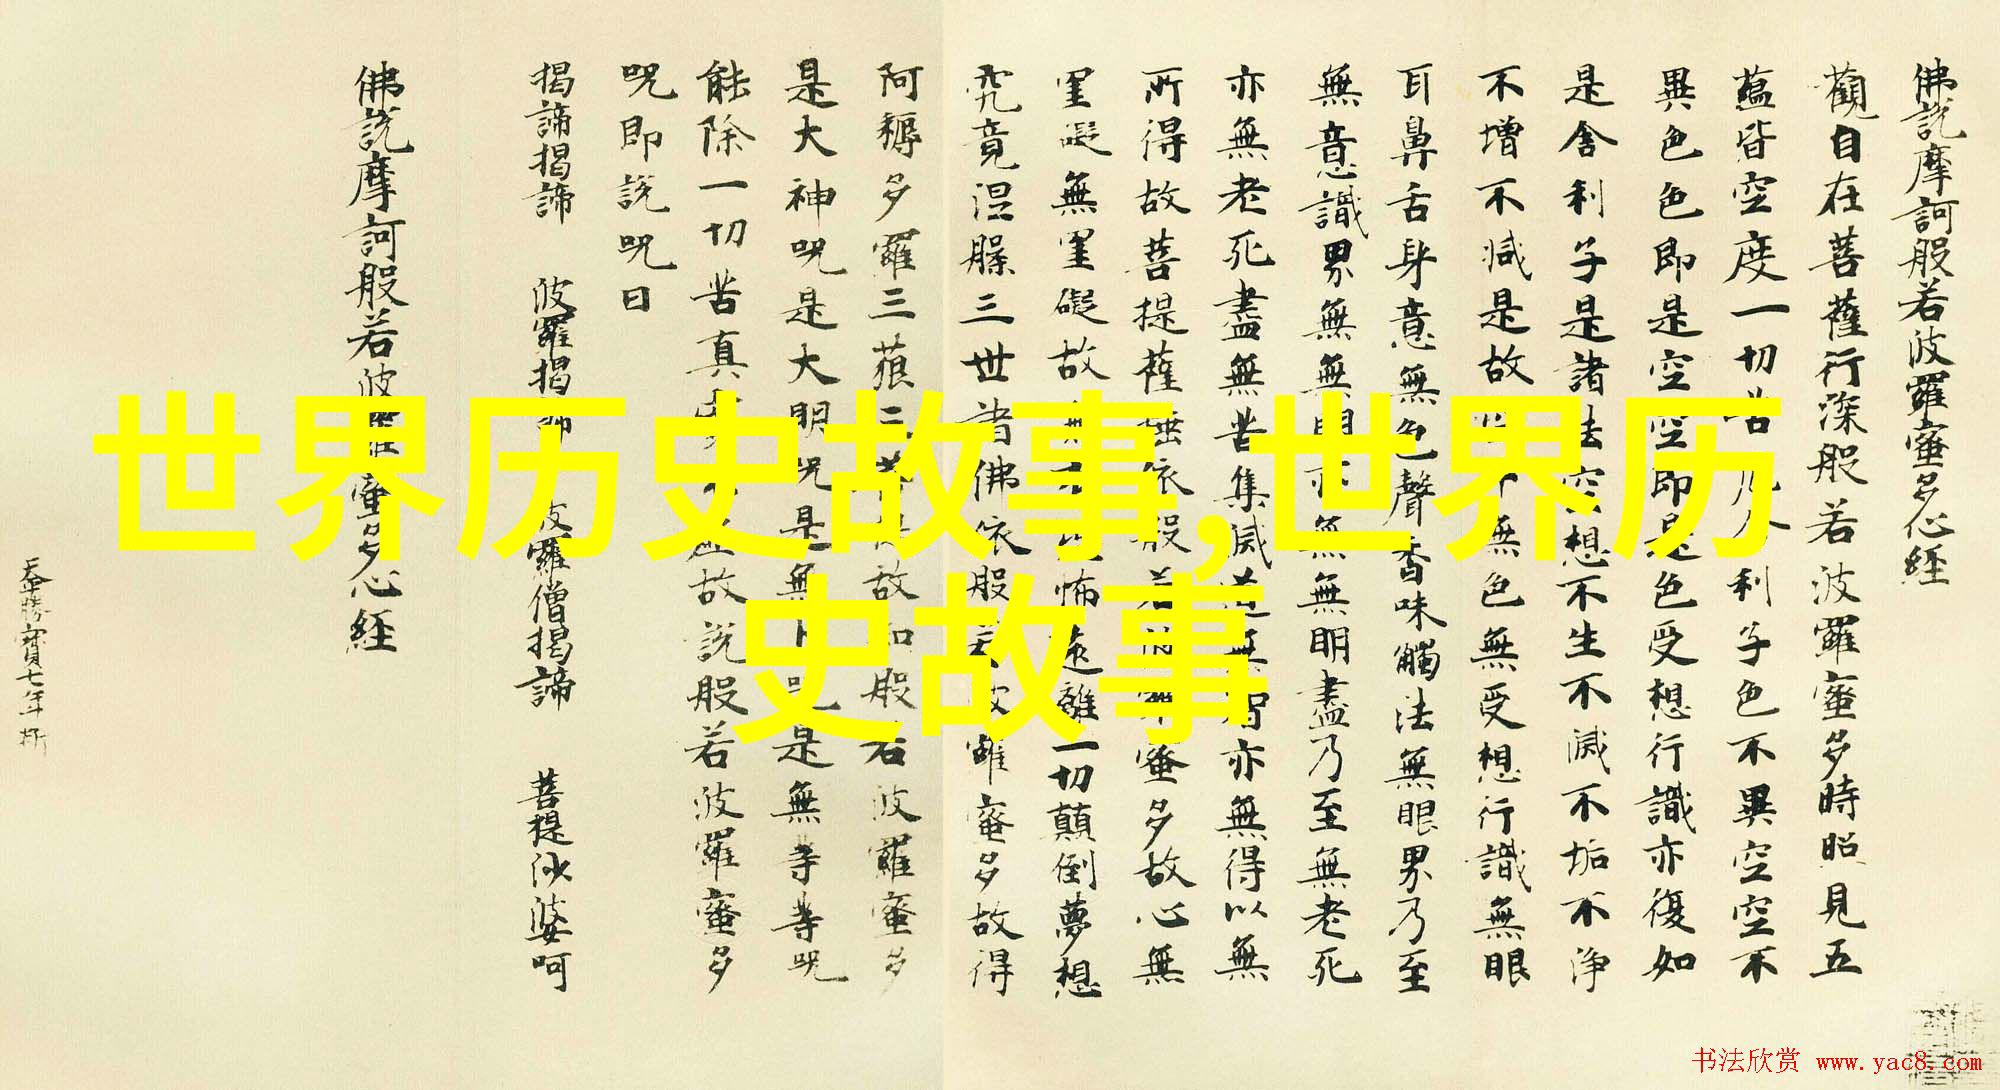 佛說摩訶般若波羅蜜多心經
觀自在菩薩行深般若波羅蜜多時照見五
蘊皆空度一切苦利子色不異空空不
異色色即是空空即是色受想行識亦復如
是舍利子是諸法空想不生不滅不垢不淨
不增不減是故無色無受想行識無眼
耳鼻舌身意無色聲香味觸法無眼界乃至
無意識界無無明亦無無明盡乃至無老死
亦無老死盡無苦集滅道無智亦無得以無
所得故菩提薩埵依般若波羅蜜多故心無
罣礙無罣礙故無怖遠離一切顛倒夢想
究竟涅槃三世諸佛依般若波羅蜜多故得
阿耨多羅三藐三菩提故知般若波羅蜜多
是大神呪是大明呪是無上呪是無等等呪
能除一切苦真實不虛故說般若波羅蜜多
呪即說呪曰
揭諦揭諦 波羅揭諦 波羅僧揭諦 菩提沙婆呵
佛說摩訶般若波羅蜜多心經
勝寶七年
世界历史故事,世界历
史故事
书法欣赏 www.yac8.com